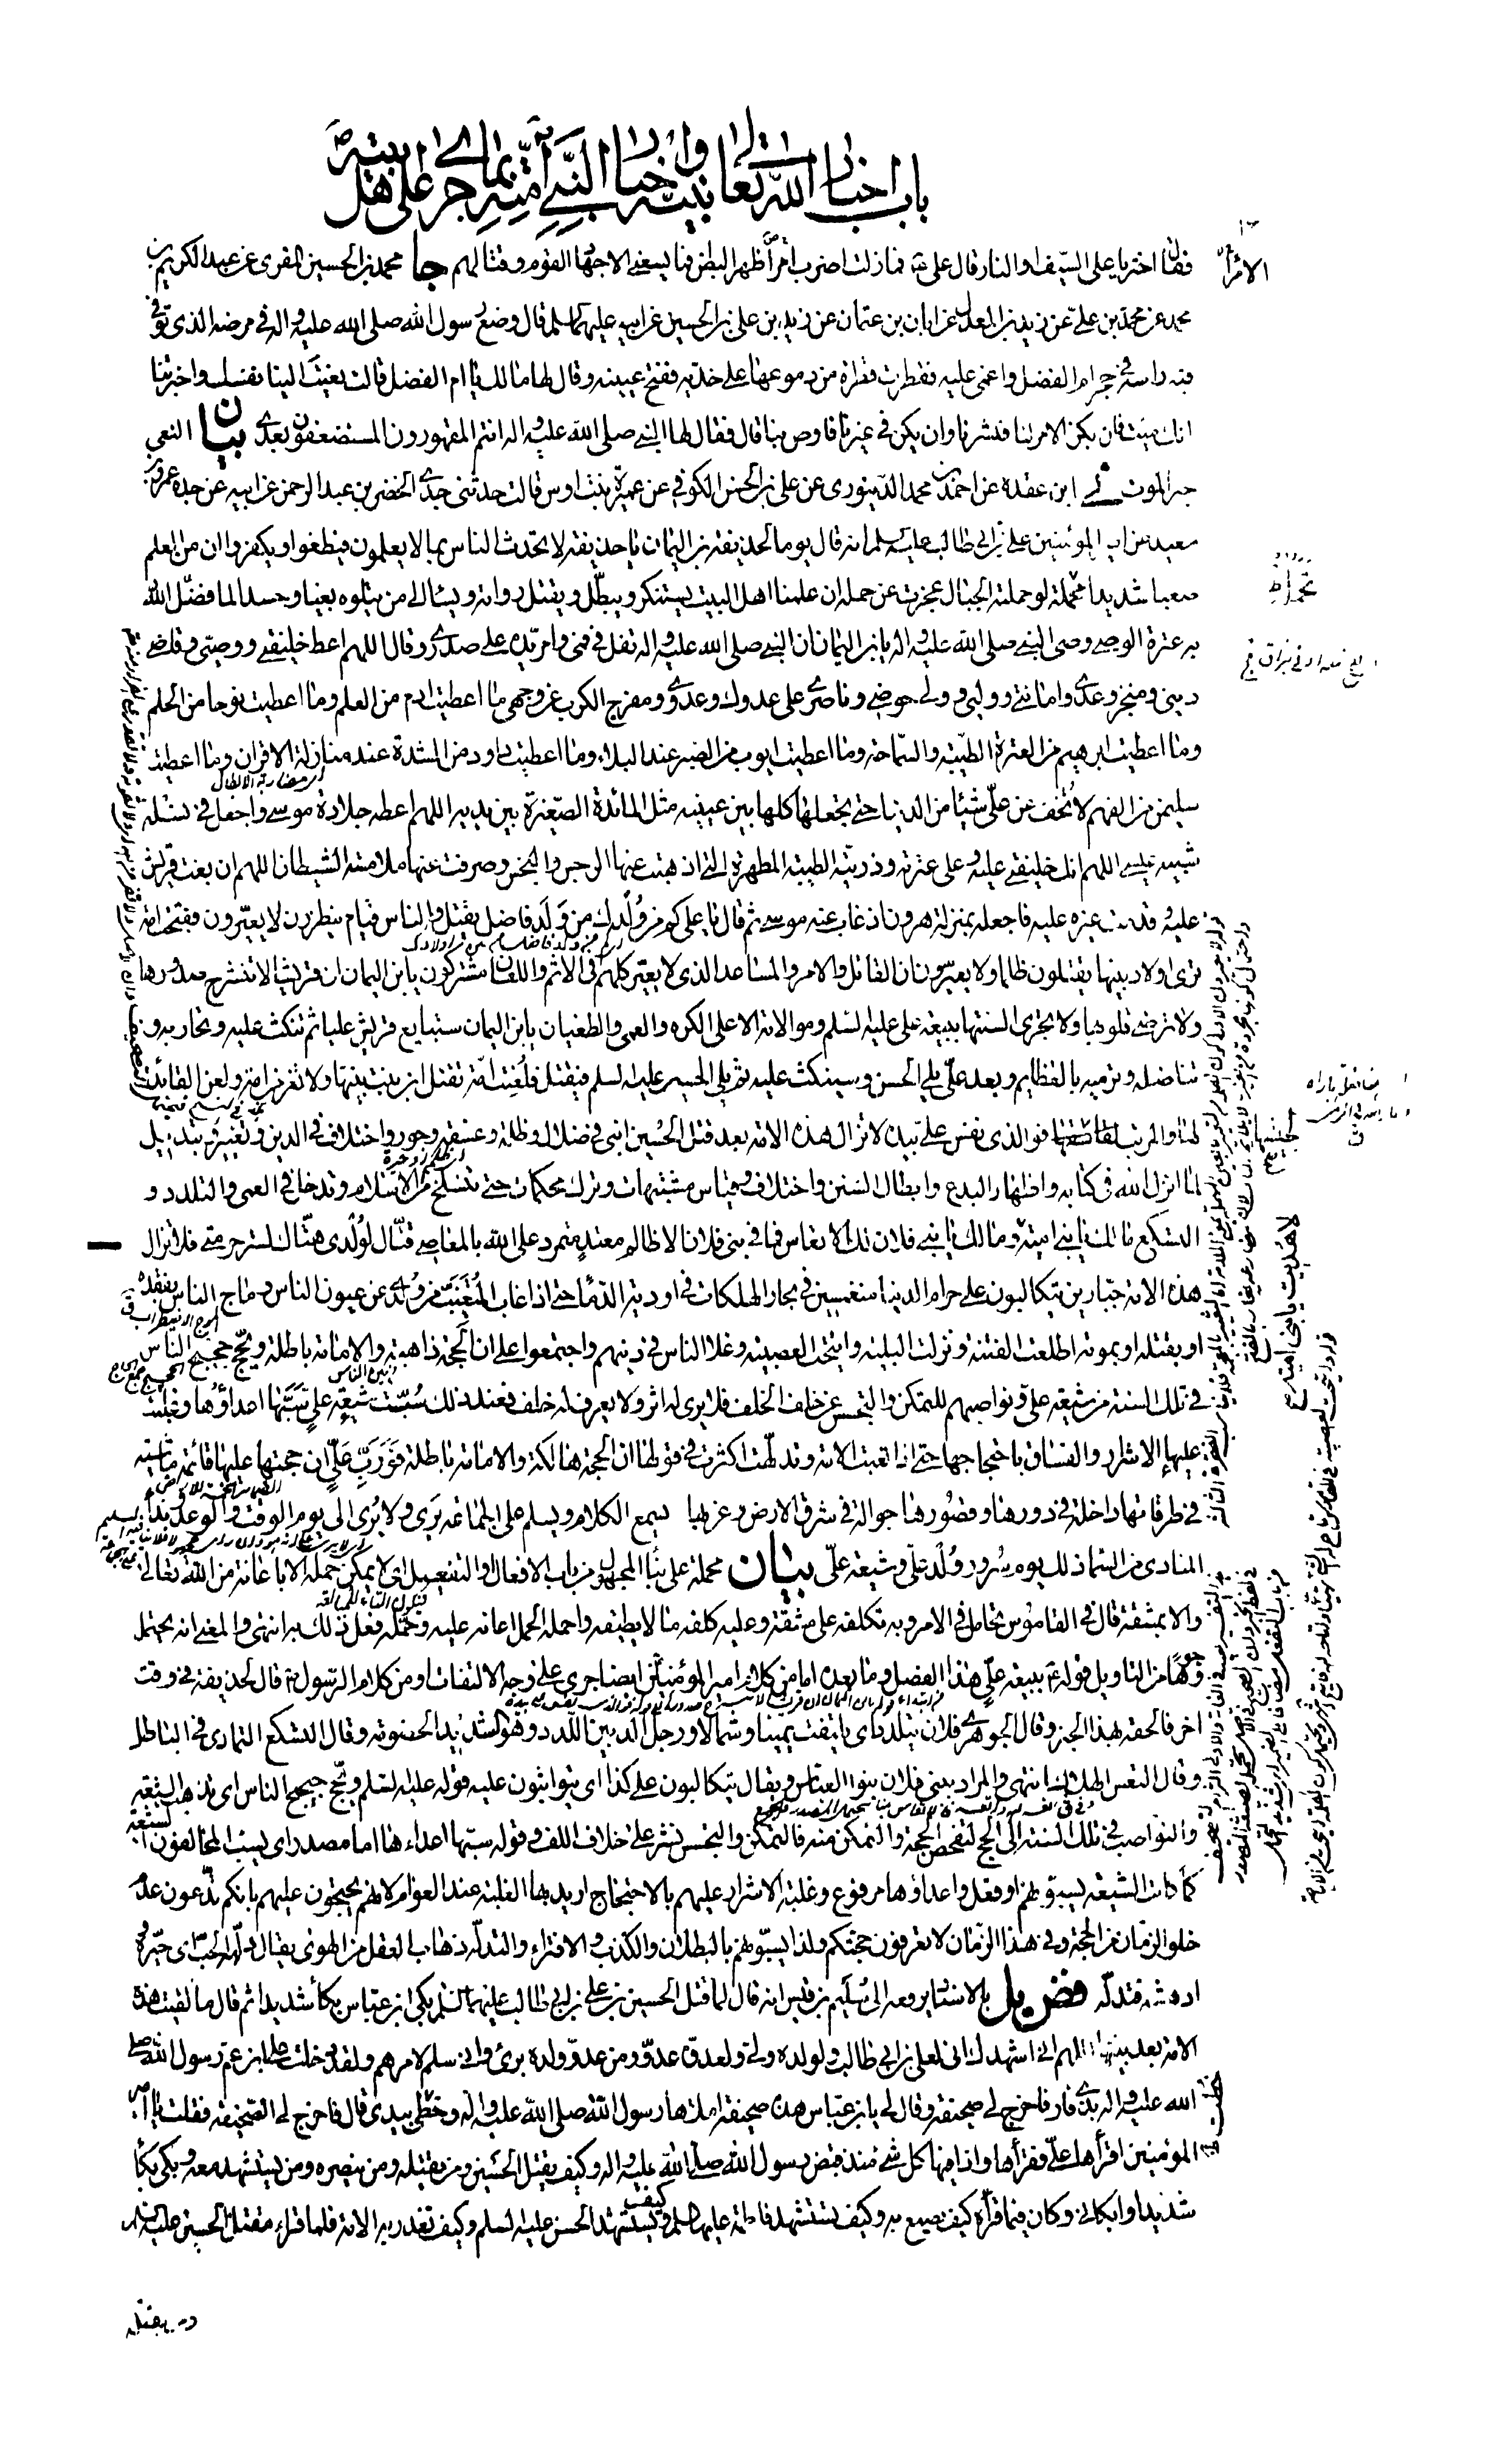 باب اخبار الله تعالى نبيه واخبار النبي امته بما جرى على اهل بيته
فقال اختر يا علي السيف او النار قال علي فما زلت اضرب امري ظهرا لبطن فما يسعني الا جهاد القوم وقتالهم جا محمد بن الحسين المقري عن عبد الكريم بن
محمد عن محمد بن علي عن زيد بن المعدل عن ابان بن عثمان عن زيد بن علي بن الحسين عن ابيه عليهم السلم قال وضع رسول الله صلى الله عليه واله في مرضه الذي توفي
فيه راسه في حجر ام الفضل واغمي عليه فقطرت قطرة من دموعها على خديه ففتح عينيه وقال لها مالك يا ام الفضل قالت نعيت الينا نفسك واخبرتنا
انك ميت فان يكن الامر لنا فبشرنا وان يكن في غيرنا فاوص بنا قال فقال لها النبي صلى الله عليه واله انتم المقهورون المستضعفون بعدي بيان النعي
خبر الموت ني ابن عقدة عن احمد بن محمد الدينوري عن علي بن الحسن الكوفي عن عميرة بنت اوس قالت حدثني جدي الخضر بن عبد الرحمن عن ابيه عن جده عمرو بن
سعيد عن امير المؤمنين علي بن ابي طالب عليه السلم انه قال يوما لحذيفة بن اليمان يا حذيفة لا تحدث الناس بما لا يعلمون فيطغوا ويكفروا ان من العلم
صعبا شديدا محمله لو حملته الجبال عجزت عن حمله ان علمنا اهل البيت يستنكر ويبطل ويقتل رواته ويساء الى من يتلوه بغيا وحسدا لما فضل الله
به عترة الوصي وصي النبي صلى الله عليه واله يا بن اليمان ان النبي صلى الله عليه واله تفل في فمي وامر يده على صدري وقال اللهم اعط خليفتي ووصيي وقاضي
ديني ومنجز وعدي وامانتي ووليي وولي حوضي وناصري على عدوك وعدوي ومفرج الكرب عن وجهي ما اعطيت ادم من العلم وما اعطيت نوحا من الحلم
وما اعطيت ابرهيم من العترة الطيبة والسماحة وما اعطيت ايوب من الصبر عند البلاء وما اعطيت داود من الشدة عند منازلة الاقران وما اعطيت
سليمن من الفهم لا تخف عن علي شيئا من الدنيا حتى تجعلها كلها بين عينيه مثل المائدة الصغيرة بين يديه اللهم اعطه جلادة موسى واجعل في نسله
شبيه عيسى اللهم انك خليفتي عليه وعلى عترته وذريته الطيبة المطهرة التي اذهبت عنها الرجس والنجس وصرفت عنها ملامسة الشيطان اللهم ان بغت قريش
عليه وقدمت غيره عليه فاجعله بمنزلة هرون اذ غاب عنه موسى ثم قال يا علي كم من ولدك من ولد فاضل يقتل والناس قيام ينظرون لا يغيرون فقبحت امة
ترى اولاد نبيها يقتلون ظلما ولا يغيرون ان القاتل والامر والمساعد الذي لا يغير كلهم في الاثم واللعان مشتركون يا بن اليمان ان قريشا لا تنشرح صدورها
ولا ترضى قلوبها ولا تجري السنتها ببيعة علي عليه السلم وموالاته الا على الكره والعمى والطغيان يا بن اليمان ستبايع قريش عليا ثم تنكث عليه وتحاربه و
تناضله وترميه بالعظايم وبعد علي يلي الحسن وسينكث عليه ثم يلي الحسين عليه السلم فيقتل فلعنت امة تقتل ابن بنت نبيها ولا تعز من امة ولعن القائد
لها والمرتب لفاسقها فو الذي نفس علي بيده لا تزال هذه الامة بعد قتل الحسين ابني في ضلال وظلمة وعسفة وجور واختلاف في الدين وتغيير وتبديل
لما انزل الله في كتابه واظهار البدع وابطال السنن واختلاف وقياس مشتبهات وترك محكمات حتى تنسلخ من الاسلام وتدخل في العمى والتلدد و
التسكع مالك يا بني امية ومالك يا بني فلان لك الاتعاس فما في بني فلان الا ظالم معتد متمرد على الله بالمعاصي قتال لولدي هتاك لستر حرمتي فلا تزال
هذه الامة جبارين يتكالبون على حرام الدنيا منغمسين في بحار الهلكات في اودية الدماء حتى اذا غاب المتغيب من ولدي عن عيون الناس وماج الناس بفقده
او بقتله او بموته اطلعت الفتنة ونزلت البلية واتيحت العصبية وغلا الناس في دينهم واجتمعوا على ان الحجة ذاهبة والامامة باطلة ويحج حجيج الناس
في تلك السنة من شيعة علي ونواصبهم للتمكن والتجسس عن خلف الخلف فلا يرى له اثر ولا يعرف له خلف فعند ذلك سبت شيعة علي سبها اعداؤها وغلبت
عليها الاشرار والفساق باحتجاجها حتى اذا تعبت الامة وتدلهت اكثرت في قولها ان الحجة هالكة والامامة باطلة فورب علي ان حجتها عليها قائمة ماشية
في طرقاتها داخلة في دورها وقصورها جوالة في شرق الارض وغربها يسمع الكلام ويسلم على الجماعة يرى ولا يرى الى يوم الوقت والوعد ونداء
المنادي من السماء ذلك يوم سرور ولد علي وشيعة علي بيان محمله على بناء المجهول من باب الافعال والتفعيل اي لا يمكن حمله الا باعانة من الله تعالى
والا بمشقة قال في القاموس تحامل في الامر وبه تكلفه على مشقة وعليه كلفه ما لا يطيقه واحمله الحمل اعانه عليه وحمله فعل ذلك به انتهى والمعنى انه يحتمل
وجوها من التاويل قوله ع ببيعة علي هذا الفصل وما بعده اما من كلام امير المؤمنين ايضا جرى على وجه الالتفات او من كلام الرسول ص قال لحذيفة في وقت
اخر فالحقه بهذا الخبر وقال الجوهري فلان يتلدد اي يلتفت يمينا وشمالا ورجل الد بين اللدد وهو الشديد الخصومة وقال التسكع التمادي في الباطل
وقال التعس الهلاك انتهى والمراد ببني فلان بنوا العباس ويقال يتكالبون على كذا اي يتواثبون عليه قوله عليه السلم ويحج حجيج الناس اي يذهب الشيعة
والنواصب في تلك السنة الى الحج لتفحص الحجة والتمكن منه فالتمكن والتجسس نشر على خلاف اللف وقوله سبها اعداءها اما مصدر اي يسب المخالفون الشيعة
كما كانت الشيعة يسبونهم او فعل واعداؤها مرفوع وغلبة الاشرار عليهم بالاحتجاج اريد بها الغلبة عند العوام لانهم يحتجون عليهم بانكم تدعون عدم
خلو الزمان من الحجة وفي هذا الزمان لا تعرفون حجتكم ولذا يسبونهم بالبطلان والكذب والافتراء والتدله ذهاب العقل من الهوى يقال دلهه الحب اي حيره و
ادهشه فتدله فض يل بالاسناد يرفعه الى سليم بن قيس انه قال لما قتل الحسين بن علي بن ابي طالب عليهما السلم بكى ابن عباس بكاء شديدا ثم قال ما لقيت هذه
الامة بعد نبيها اللهم اني اشهدك اني لعلي بن ابي طالب ولولده ولي ولعدوه عدو ومن عدو ولده بري واني سلم لامرهم ولقد دخلت على ابن عم رسول الله صلى
الله عليه واله بذي قار فاخرج لي صحيفة وقال لي يا بن عباس هذه صحيفة املاها رسول الله صلى الله عليه واله وخطي بيدي قال فاخرج لي الصحيفة فقلت يا امير
المؤمنين اقرأها علي فقرأها واذا فيها كل شيء منذ قبض رسول الله صلى الله عليه واله وكيف يقتل الحسين ومن يقتله ومن ينصره ومن يستشهد معه وبكى بكاء
شديدا وابكاني وكان فيما قرأه كيف يصنع به وكيف تستشهد فاطمة عليها السلم وكيف يستشهد الحسن عليه السلم وكيف تغدر به الامة فلما قرأ مقتل الحسين عليه السلم
ومن يقتله